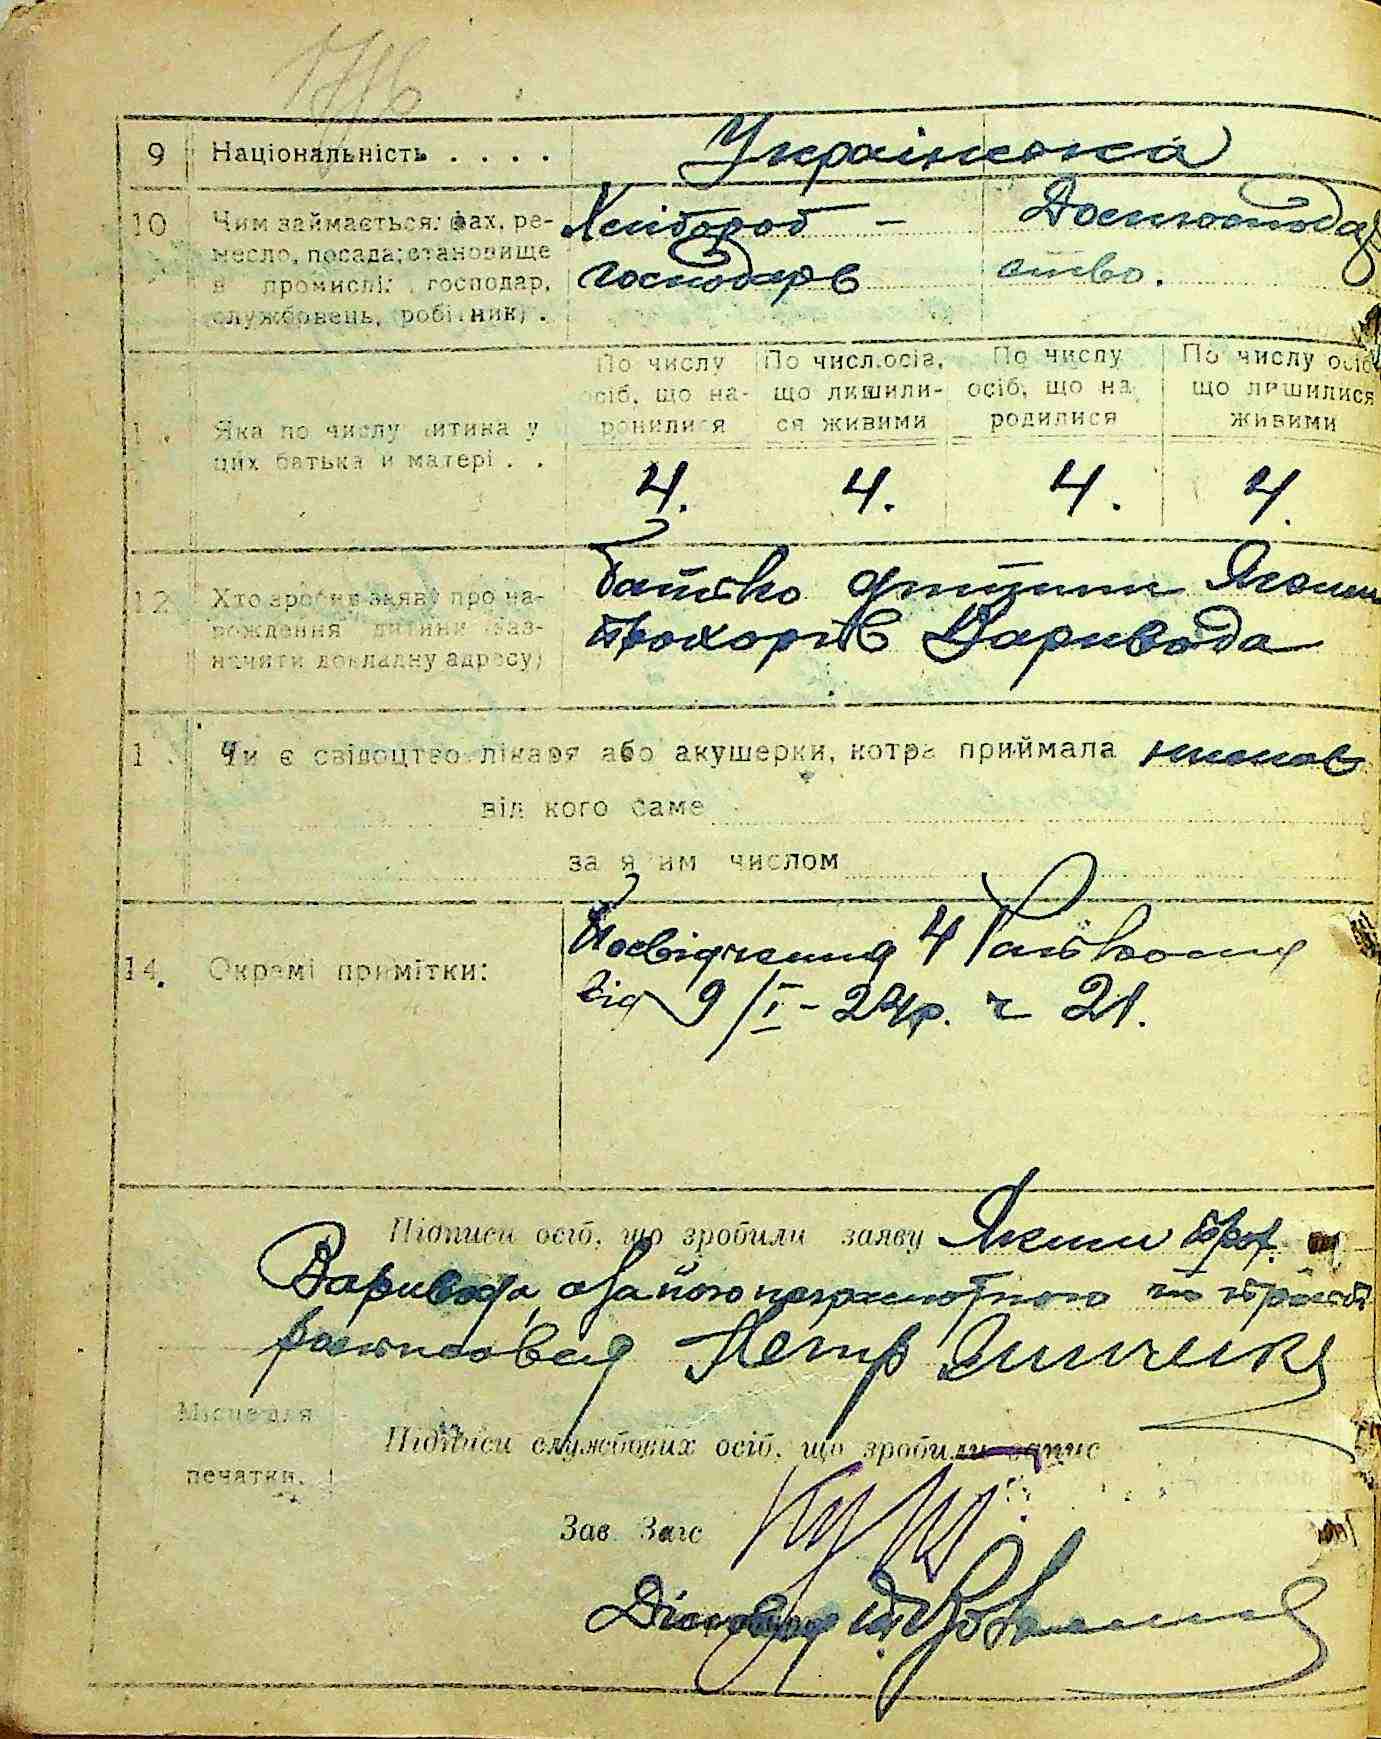 9 Національність . . . . Українська
10 Чим займається: фах, ре- Хлібороб – Домгоспода
месло, посада; становище господарь рство.
в промислі: господар,
службовець, робітник) .
По числу По числ.осіб, По числу По числу осіб
осіб, що на- що лишили- осіб, що на що лишилися
родилися ся живими родилися живими
Яка по числу дитина у
цих батька й матері . . 4. 4. 4. 4.
12 Хто зробив заяву про на- батько дитини Яким
рождення дитини (заз- Прохорів Варивода
начити докладну адресу)
1 Чи є свідоцтво лікаря або акушерки, котра приймала
від кого саме
за яким числом
14. Окремі примітки: Посвідчення 4 Райкома
від 9/I – 24р. ч 21.
Підписи осіб, що зробили заяву Яким Прох.
Варивода, а за його неграмотного
росписався Петр
Місце для
печатки.
Підписи службових осіб, що зробили запис
Зав. Загс
Діловод